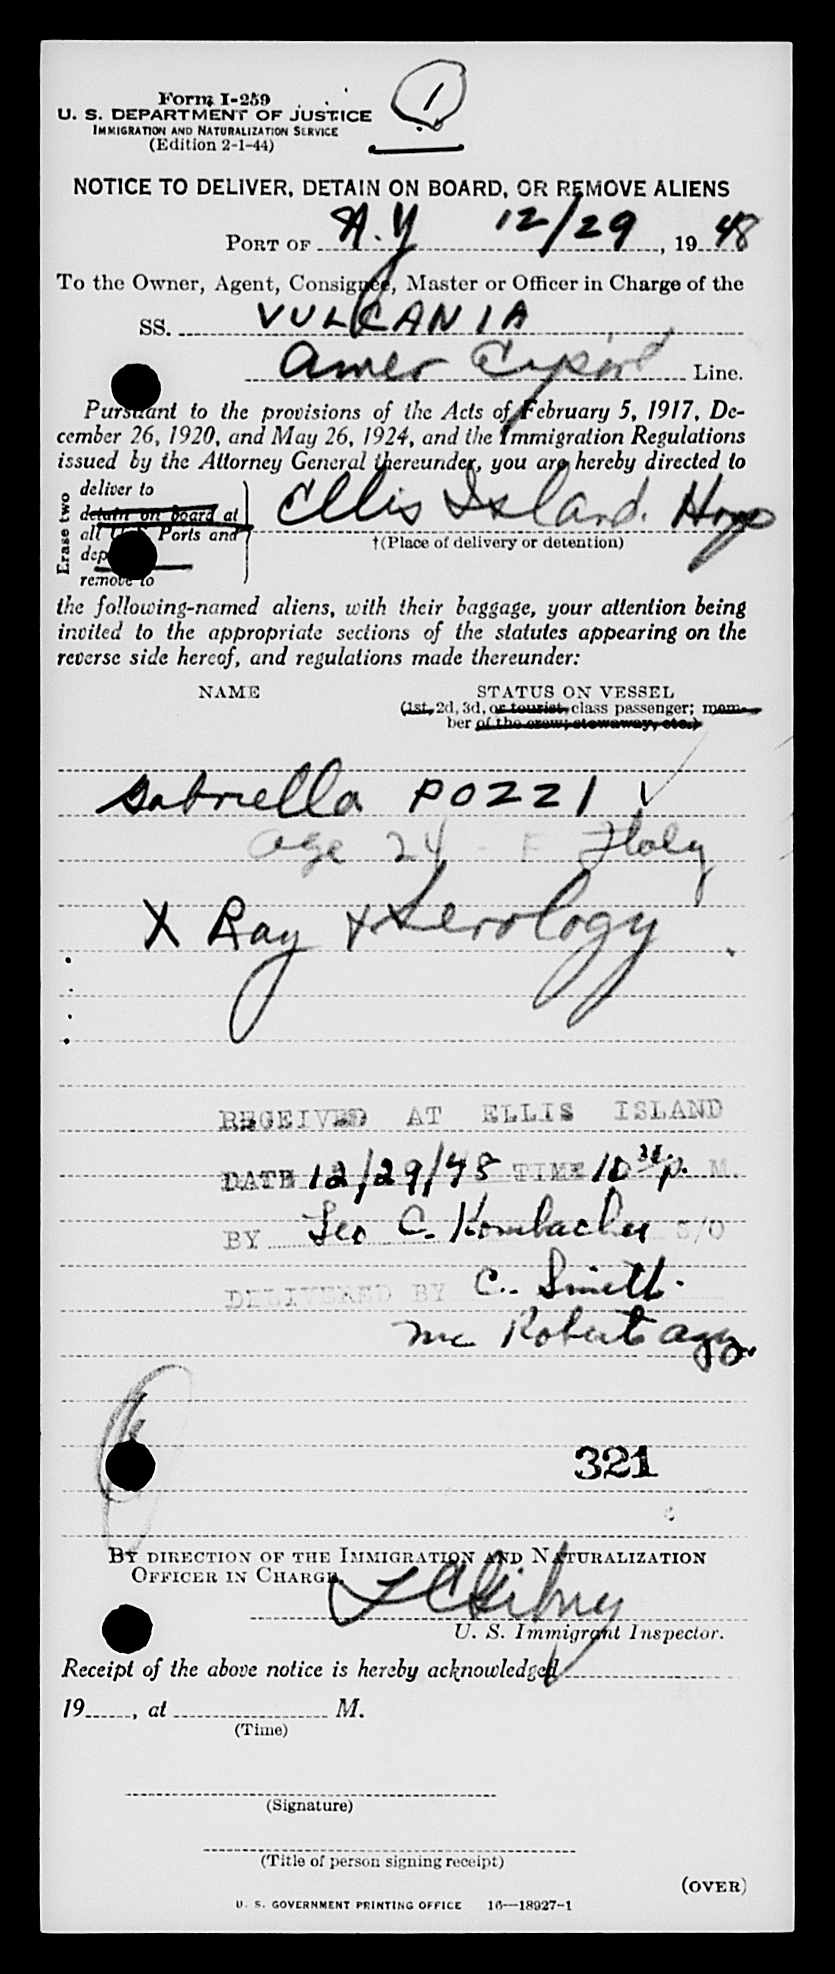 1
Form I-259
U. S. DEPARTMENT OF JUSTICE
IMMIGRATION AND NATURALIZATION SERVICE
(Edition 2-1-44)
NOTICE TO DELIVER, DETAIN ON BOARD, OR REMOVE ALIENS
PORT OF N.Y 12/29, 1948
To the Owner, Agent, Consignee, Master or Officer in Charge of the
SS. VULCANIA
Amer Export Line.
Pursuant to the provisions of the Acts of February 5, 1917, De-
cember 26, 1920, and May 26, 1924, and the Immigration Regulations
issued by the Attorney General thereunder, you are hereby directed to
Erase two
deliver to
detain on board at
all Ports and
remove to
Ellis Island. Hosp
†(Place of delivery or detention)
the following-named aliens, with their baggage, your attention being
invited to the appropriate sections of the statutes appearing on the
reverse side hereof, and regulations made thereunder:
NAME STATUS ON VESSEL
(1st, 2d, 3d, or tourist, class passenger; mem-
ber of the crew; stowaway, etc.)
Gabriella POZZI
age 24 - F Italy
X Ray + Serology
RECEIVED AT ELLIS ISLAND
DATE 12/29/48 TIME 10 P. M.
BY Leo C. S/O
DELIVERED BY C.
Mc Roberts agy.
321
BY DIRECTION OF THE IMMIGRATION AND NATURALIZATION
OFFICER IN CHARGE.
U. S. Immigrant Inspector.
Receipt of the above notice is hereby acknowledged
19, at M.
(Time)
(Signature)
(Title of person signing receipt)
(OVER)
U. S. GOVERNMENT PRINTING OFFICE 16—18927-1